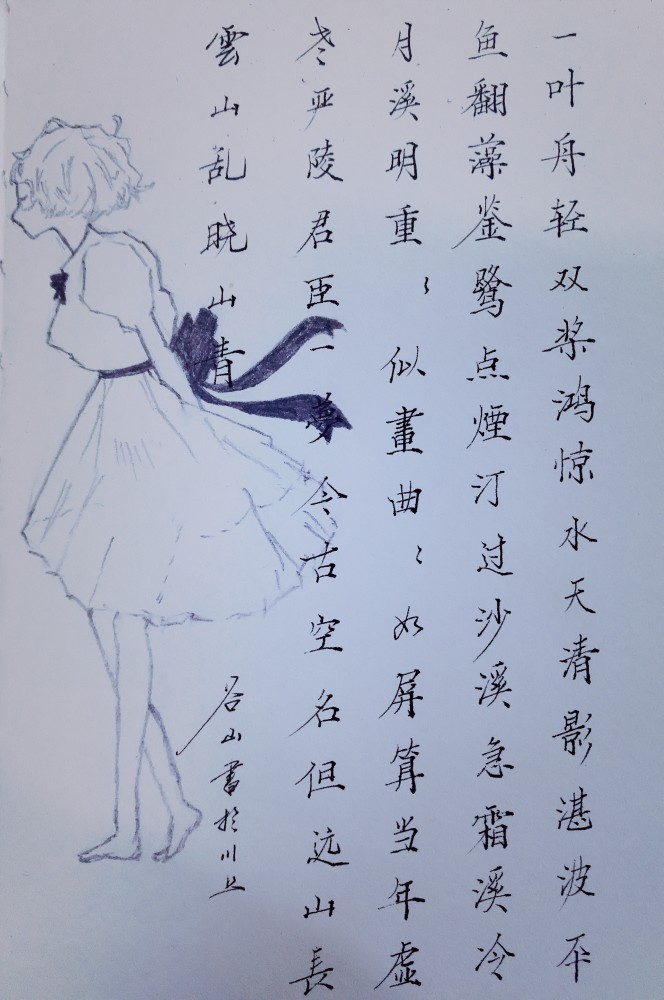 一叶舟轻双桨鸿惊水天清影湛波平
鱼翻藻鉴鹭点煙汀过沙溪急霜溪冷
月溪明重〻似畫曲〻如屏算当年虚
老严陵君臣一夢今古空名但远山長
雲山乱晓山青
谷山書於川上